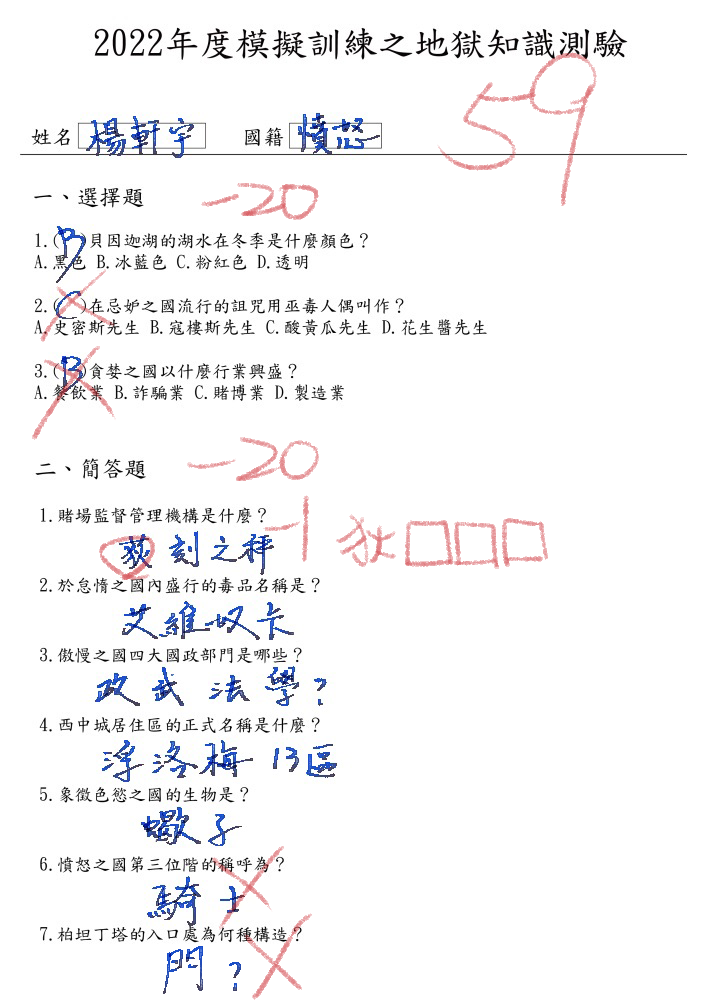 2022年度模擬訓練之地獄知識測驗
59
姓名 楊軒宇 國籍 憤怒
一、選擇題 -20
1.(B)貝因迦湖的湖水在冬季是什麼顏色？
A.黑色 B.冰藍色 C.粉紅色 D.透明
2.(C)在忌妒之國流行的詛咒用巫毒人偶叫作？
A.史密斯先生 B.寇樓斯先生 C.酸黃瓜先生 D.花生醬先生
3.(B)貪婪之國以什麼行業興盛？
A.餐飲業 B.詐騙業 C.賭博業 D.製造業
二、簡答題 -20
1.賭場監督管理機構是什麼？
荻刻之秤 -1 狄□□□
2.於怠惰之國內盛行的毒品名稱是？
艾維奴卡
3.傲慢之國四大國政部門是哪些？
政武法學?
4.西中城居住區的正式名稱是什麼？
浮洛梅13區
5.象徵色慾之國的生物是？
蠍子
6.憤怒之國第三位階的稱呼為？
騎士
7.柏坦丁塔的入口處為何種構造？
門?